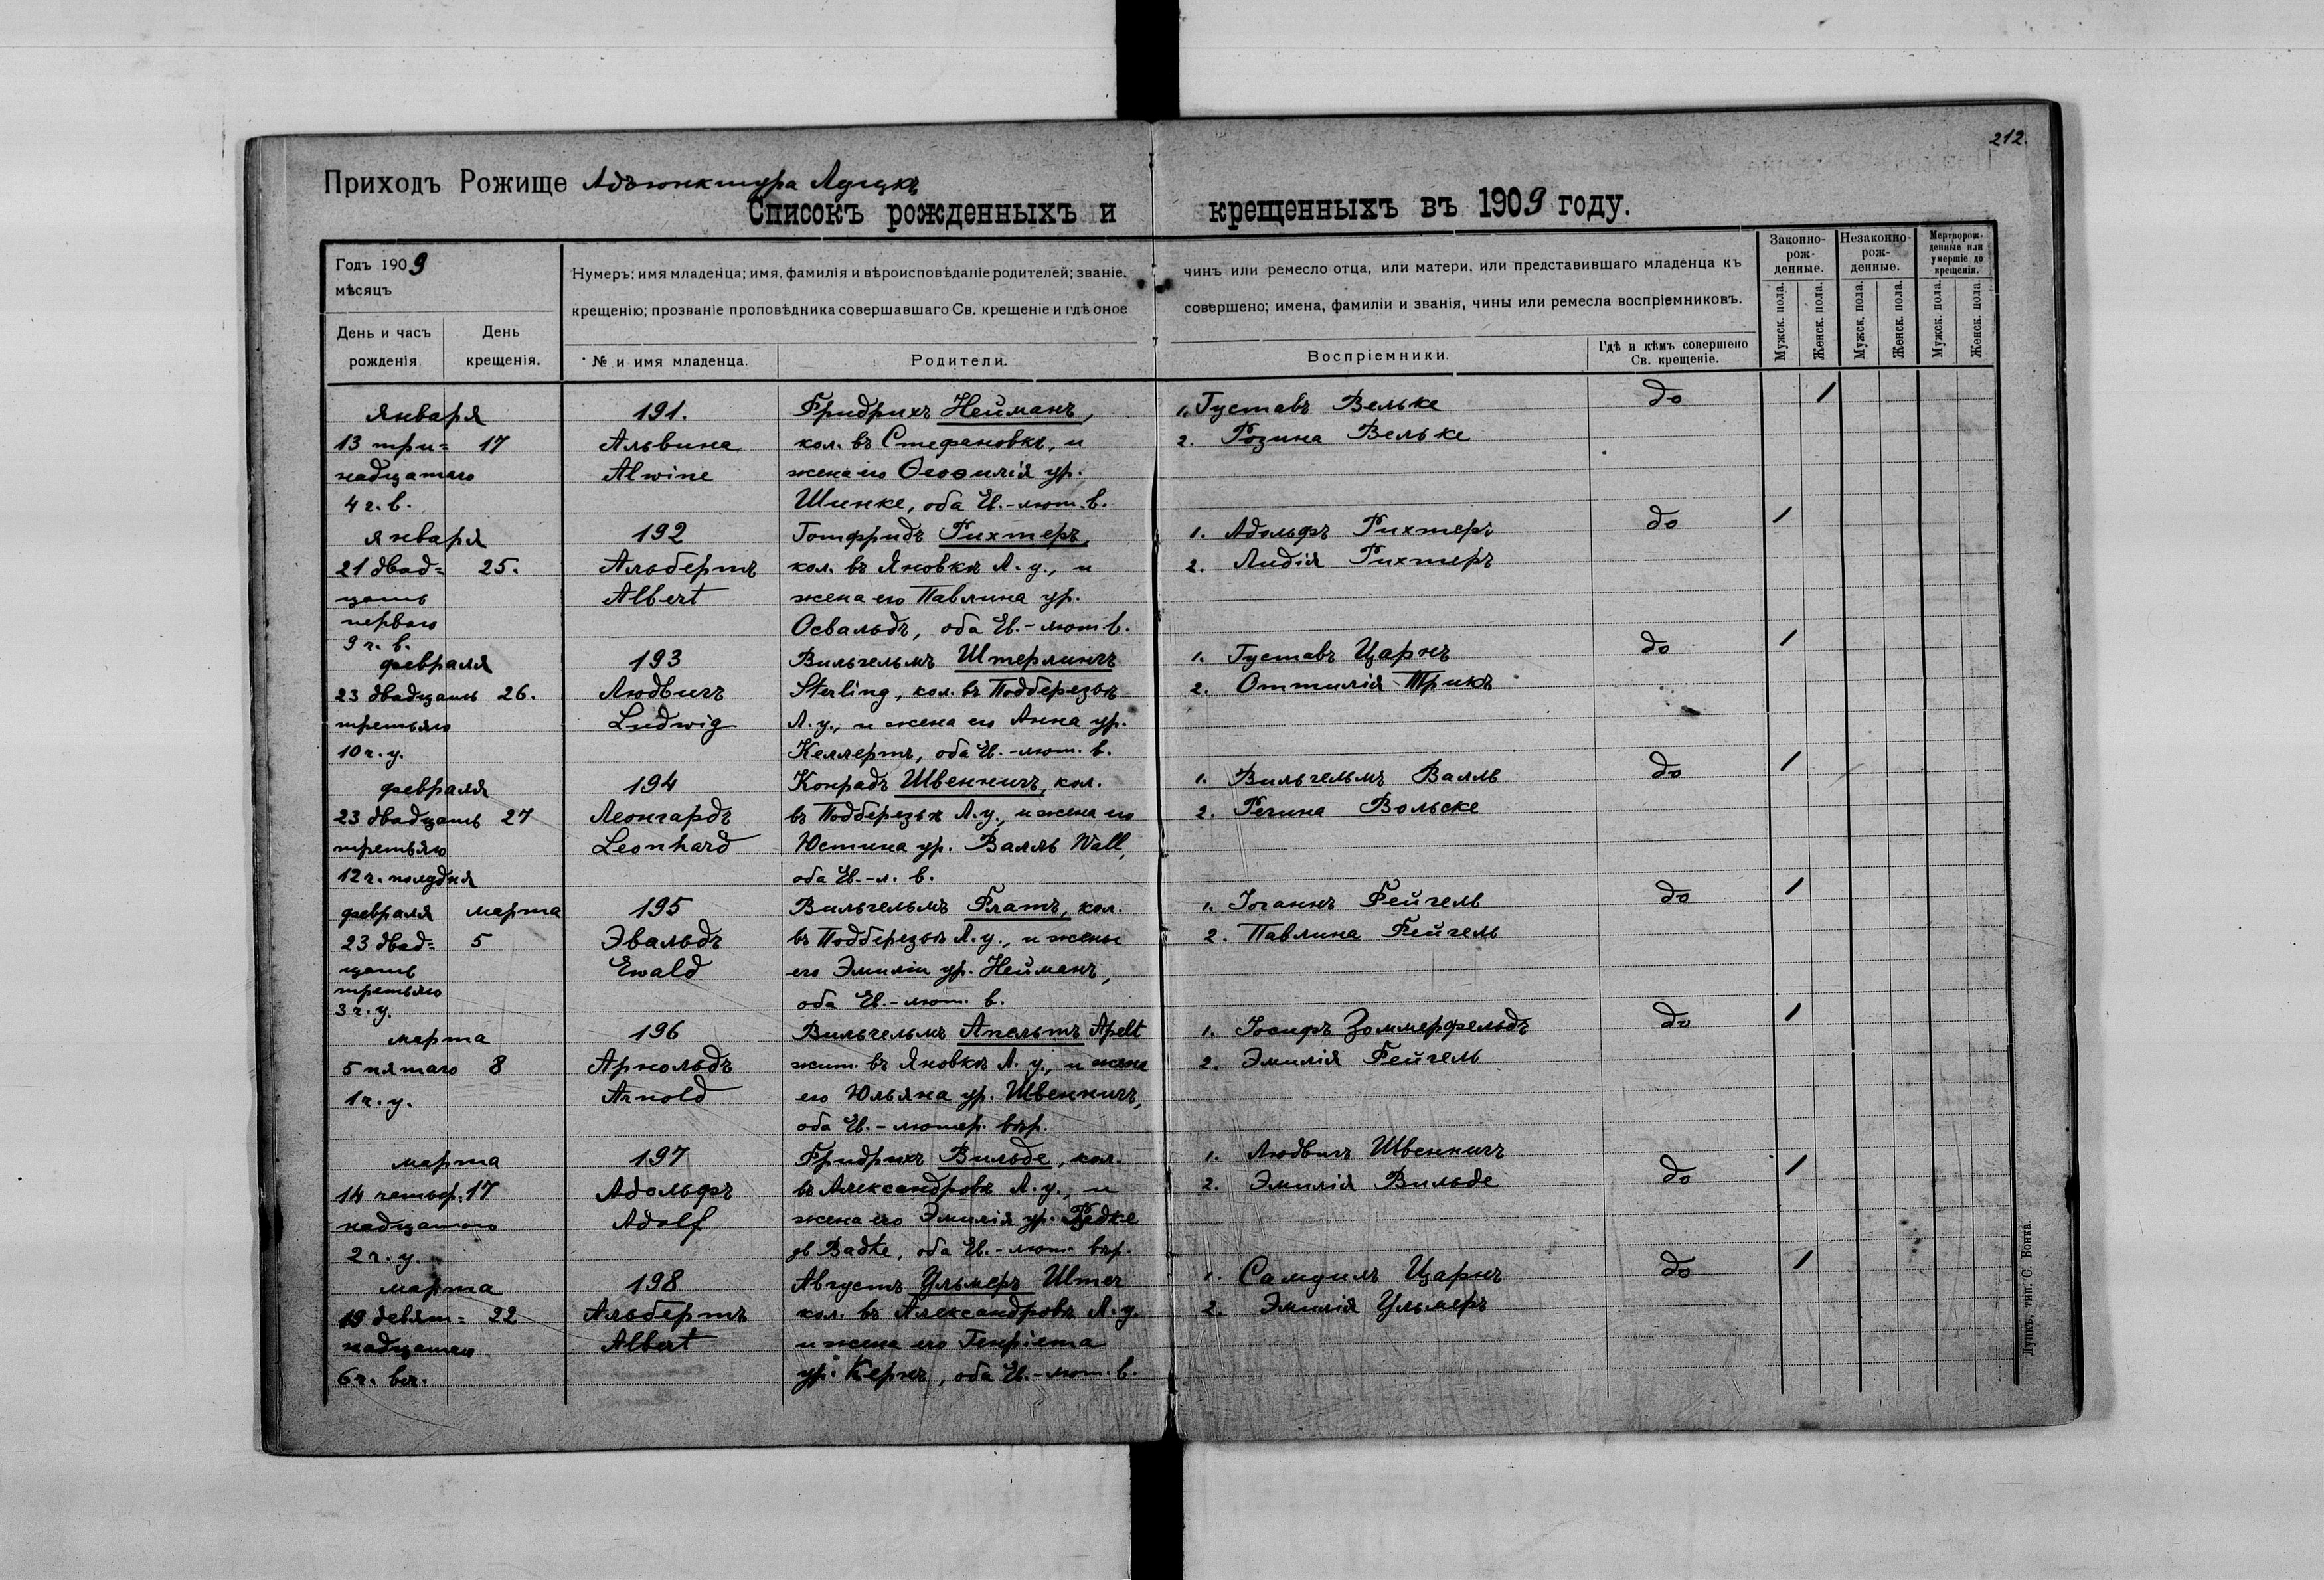 212.
Приходъ Рожище Адъюнктура Луцкъ
Списокъ рожденныхъ и крещенныхъ въ 1909 году.
Годъ 1909
мѣсяцъ
День и часъ рожденія.
День крещенія.
Нумеръ; имя младенца; имя, фамилія и вѣроисповѣданіе родителей; званіе, чинъ или ремесло отца, или матери, или представившаго младенца къ
крещенію; прозваніе проповѣдника совершавшаго Св. крещеніе и гдѣ оное совершено; имена, фамиліи и званія, чины или ремесла воспріемниковъ.
№ и имя младенца.
Родители.
Воспріемники.
Гдѣ и кѣмъ совершено Св. крещеніе.
Законно-рож-денные.
Незаконно-рож-денные.
Мертворож-денные или умершіе до крещенія.
Мужск. пола.
Женск. пола.
Мужск. пола.
Женск. пола.
Мужск. пола.
Женск. пола.
Января 191. Фридрихъ Нейманъ, 1. Густавъ Вельке до 1
13 три= 17 Альвина кол. въ Стефановкѣ, и 2. Розина Вельке
надцатаго Alwine жена его Ѳеофилія ур.
4 ч. в. Шинке, оба Ев.-лют. в.
января 192 Готфридъ Рихтеръ, 1. Адольфъ Рихтеръ до 1
21 двад= 25. Альбертъ кол. въ Яновкѣ Л. у., и 2. Лидія Рихтеръ
цать Albert жена его Павлина ур.
перваго Освальдъ, оба Ев.-лют. в.
9 ч. в.
февраля 193 Вильгельмъ Штерлингъ 1. Густавъ Царнъ до 1
23 двадцать 26. Людвигъ Sterling, кол. въ Подберезьѣ 2. Оттилія Трикъ
третьяго Ludwig Л. у., и жена его Анна ур.
10 ч. у. Келлертъ, оба Ев.-лют. в.
февраля 194 Конрадъ Швеннигъ, кол. 1. Вильгельмъ Валль до 1
23 двадцать 27 Леонгардъ въ Подберезьѣ Л. у., и жена его 2. Регина Вольске
третьяго Leonhard Юстина ур. Валль Wall,
12 ч. полудня оба Ев.-л. в.
февраля марта 195 Вильгельмъ Фратъ, кол. 1. Іоганнъ Фейгель до 1
23 двад= 5 Эвальдъ въ Подберезьѣ Л. у., и жены 2. Павлина Фейгель
цать Ewald его Эмиліи ур. Нейманъ,
третьяго оба Ев.-лют. в.
3 ч. у.
марта 196 Вильгельмъ Апельтъ Apelt 1. Іосифъ Зоммерфельдъ до 1
5 пятаго 8 Арнольдъ жит. въ Яновкѣ Л. у., и жена 2. Эмилія Фейгель
1 ч. у. Arnold его Юльяна ур. Швеннигъ,
оба Ев.-лютер. вѣр.
марта 197 Фридрихъ Вильде, кол. 1. Людвигъ Швеннигъ
14 четыр. 17 Адольфъ въ Александровкѣ Л. у., и 2. Эмилія Вильде до 1
надцатаго Adolf жена его Эмилія ур.
2 ч. у. Badke, оба Ев.-лют. вѣр.
марта 198 Августъ Ульмеръ Ulmer 1. Самуилъ Царнъ до 1
19 девят= 22 Альбертъ кол. въ Александровкѣ Л. у. 2. Эмилія Ульмеръ
надцатаго Albert и жена его Генріета
6 ч. веч. ур. Кернъ, оба Ев.-лют. в.
Луцкъ, тип. С. Бонка.